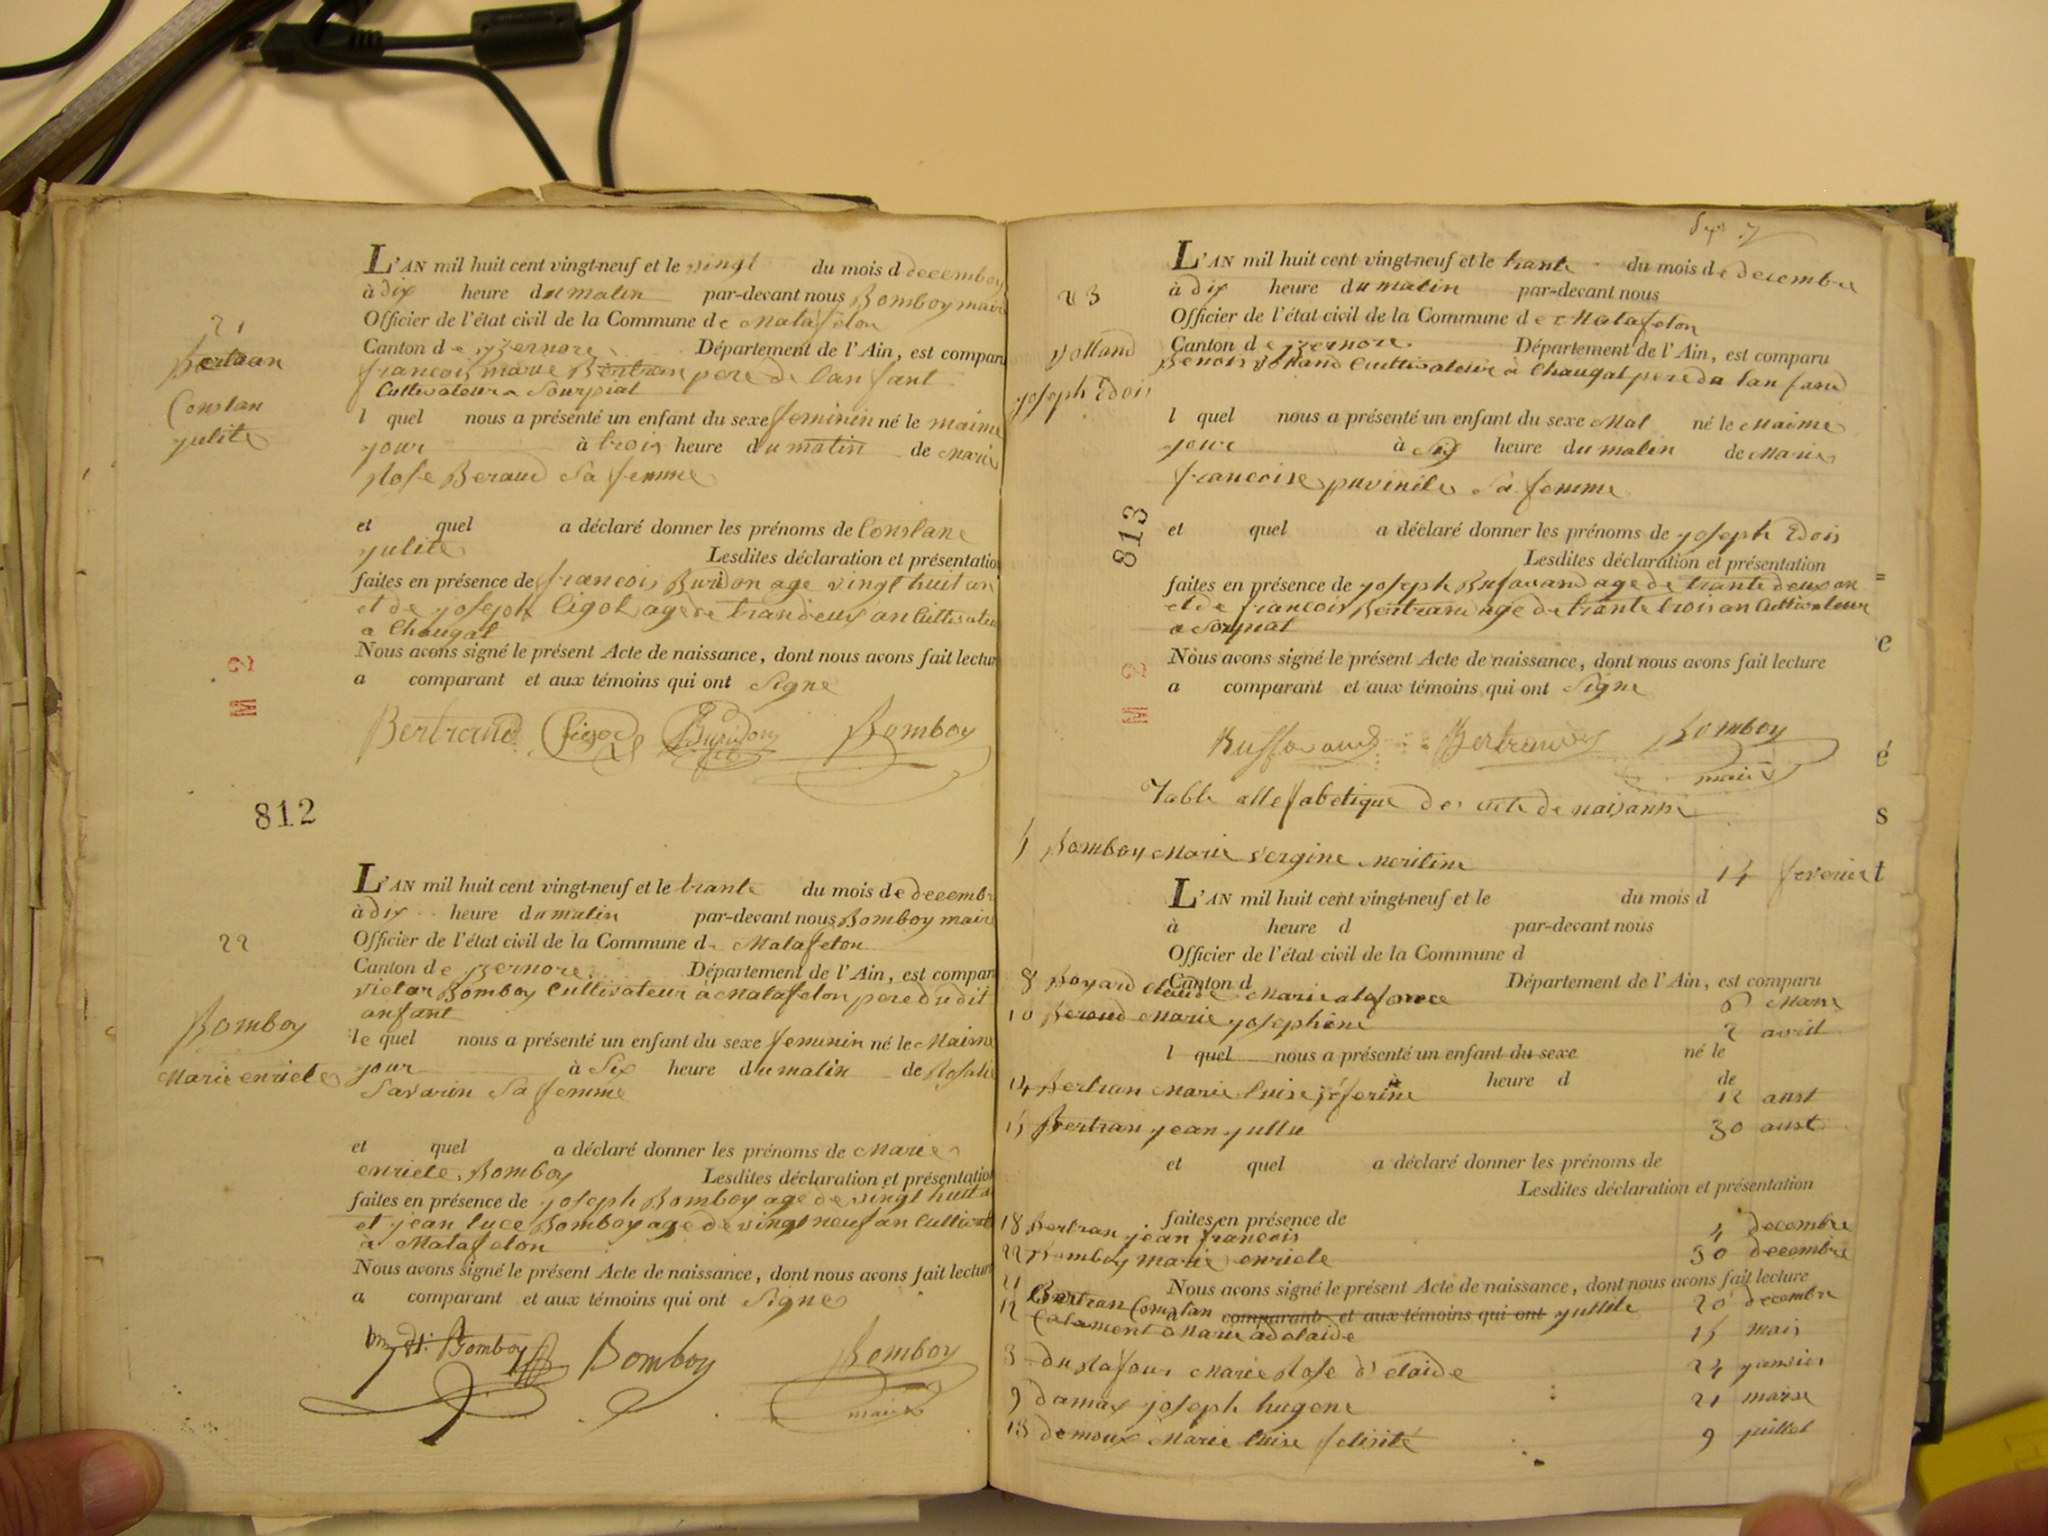 21
Bertran
Constan
yulite
L'AN mil huit cent vingt-neuf et le vingt du mois d decembr
à dix heure du matin par-devant nous Bomboy maire
Officier de l'état civil de la Commune de Matafelon
Canton de yzernore Département de l'Ain, est compar
francois marie Bertran pere de lanfant
Cultivateur a Sourpiat
l quel nous a présenté un enfant du sexe feminin né le maime
jour à trois heure du matin de Marie
Rose Beraud Sa femme
et quel a déclaré donner les prénoms de Constane
yulite Lesdites déclaration et présentation
faites en présence de francois Buridon age vingt huit an
et de joseph Cigot age de trandeux an Cultivateu
a Chougat
Nous avons signé le présent Acte de naissance, dont nous avons fait lectur
a comparant et aux témoins qui ont Signe
Bertrand Buridon Bomboy
812
22
Bomboy
Marie enriete
L'AN mil huit cent vingt-neuf et le trante du mois de decembr
à dix heure du matin par-devant nous Bomboy maire
Officier de l'état civil de la Commune de Matafelon
Canton de yzernore Département de l'Ain, est compar
victor Bomboy Cultivateur à Matafelon pere dudit
anfant
le quel nous a présenté un enfant du sexe feminin né le Maime
jour à Six heure du matin de Rosalie
Savarin Sa femme
et quel a déclaré donner les prénoms de Marie
enriete Bomboy Lesdites déclaration et présentation
faites en présence de joseph Bomboy age de vingt huit a
et jean luce Bomboy age de vingt neuf an Cultivat
à Matafelon
Nous avons signé le présent Acte de naissance, dont nous avons fait lectur
a comparant et aux témoins qui ont Signe
Bomboy Bomboy Bomboy
maire
23
volland
joseph Edois
L'AN mil huit cent vingt-neuf et le trante du mois de decembre
à dix heure du matin par-devant nous
Officier de l'état civil de la Commune de Matafelon
Canton de yzernore Département de l'Ain, est comparu
Benois Volland Cultivateur à Chougat pere de lanfand
l quel nous a présenté un enfant du sexe Mal né le Maime
jour à Six heure du matin de Marie
francoise puvinile Sa femme
et quel a déclaré donner les prénoms de joseph Edois
Lesdites déclaration et présentation
faites en présence de joseph Bufavand age de trante deux an
et de francois Bertrand age de trante trois an Cultivateur
a Sorpiat
813
Nous avons signé le présent Acte de naissance, dont nous avons fait lecture
a comparant et aux témoins qui ont Signe
Buffavand Bertrand Bomboy
maire
Table allefabetique des acte de naisanse
5 Bomboy Marie vergine Meriline 14 fevrier
L'AN mil huit cent vingt-neuf et le du mois d
à heure d par-devant nous
Officier de l'état civil de la Commune d
Canton d Département de l'Ain, est comparu
8 Boyard Claude Marie alafonce 6 Mars
10 Beroud Marie josephine 2 avril
l quel nous a présenté un enfant du sexe né le
à heure d de
14 Bertran Marie luise joserine 12 aust
15 Bertran jean jullu 30 aust
et quel a déclaré donner les prénoms de
Lesdites déclaration et présentation
faites en présence de
18 Bertran jean francois 4 decembre
22 Bomboy marie enriete 30 decembre
Nous avons signé le présent Acte de naissance, dont nous avons fait lecture
21 Bertran Constan comparant et aux témoins qui ont yullile 20 decembre
12 Calament Marie adelaide 15 mais
3 du Rafour Marie Rose d'elaide 24 janvier
9 damas joseph hugene 21 marse
13 demoux Marie luise felisité 9 juillet